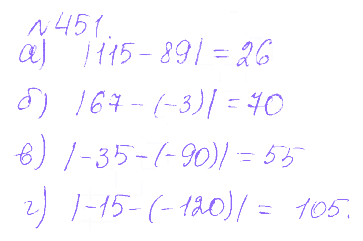 №451.
а) |115 - 89| = 26
б) |67 - (-3)| = 70
в) |-35 - (-90)| = 55
г) |-15 - (-120)| = 105.